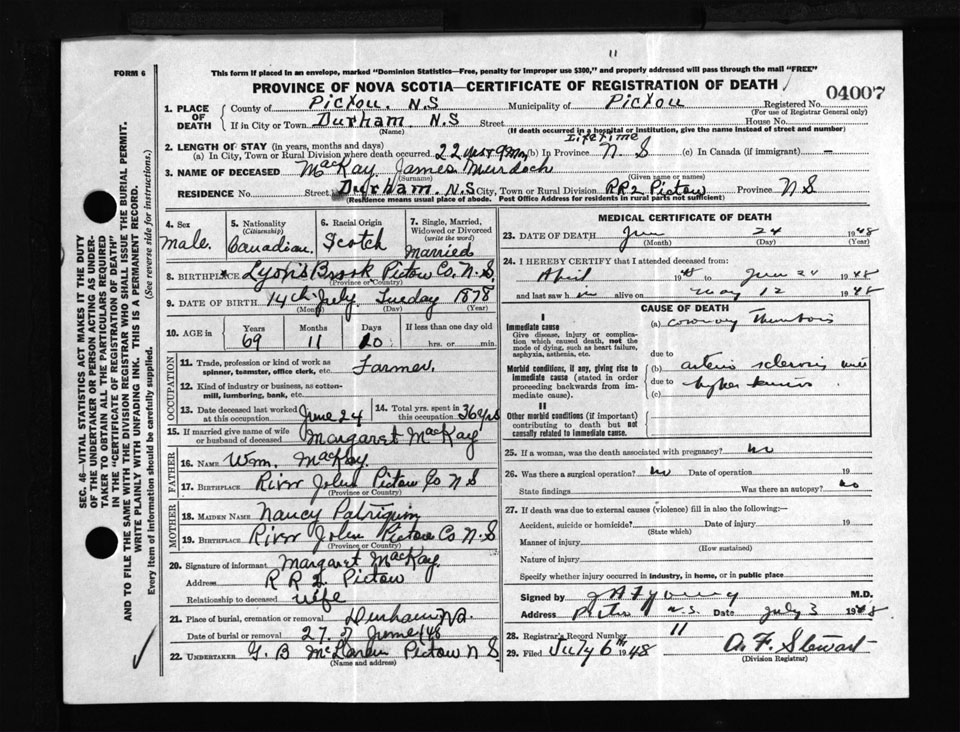 11
FORM 6
This form if placed in an envelope, marked "Dominion Statistics—Free, penalty for improper use $300," and properly addressed will pass through the mail "FREE"
PROVINCE OF NOVA SCOTIA—CERTIFICATE OF REGISTRATION OF DEATH
04007
1. PLACE OF DEATH
County of Pictou. N.S Municipality of Pictou Registered No.
(For use of Registrar General only)
If in City or Town Durham N.S Street House No.
(Name) (If death occurred in a hospital or institution, give the name instead of street and number)
2. LENGTH OF STAY (in years, months and days)
Lifetime
(a) In City, Town or Rural Division where death occurred 22 yrs & 9 Mos (b) In Province N. S (c) In Canada (if immigrant) —
3. NAME OF DECEASED MacKay James Murdoch
(Surname) (Given name or names)
RESIDENCE No. Street Durham. N.S City, Town or Rural Division RR2 Pictou Province N S
(Residence means usual place of abode. Post Office Address for residents in rural parts not sufficient)
4. Sex male.
5. Nationality (Citizenship) Canadian
6. Racial Origin Scotch
7. Single, Married, Widowed or Divorced (write the word) Married
8. BIRTHPLACE Lyon's Brook Pictou Co. N.S.
9. DATE OF BIRTH 14th July Tuesday 1878
(Month) (Day) (Year)
10. AGE in Years Months Days If less than one day old
69 11 10 hrs. or min.
OCCUPATION
11. Trade, profession or kind of work as spinner, teamster, office clerk, etc. Farmer.
12. Kind of industry or business, as cotton-mill, lumbering, bank, etc.
13. Date deceased last worked at this occupation June 24
14. Total yrs. spent in this occupation 36 yrs
15. If married give name of wife or husband of deceased Margaret MacKay
FATHER
16. NAME Wm. MacKay.
17. BIRTHPLACE River John Pictou Co N S
(Province or Country)
MOTHER
18. MAIDEN NAME Nancy Patriquin
19. BIRTHPLACE River John Pictou Co. N.S
(Province or Country)
20. Signature of informant Margaret MacKay.
Address R R 2 Pictou
Relationship to deceased wife
21. Place of burial, cremation or removal Durham N.S.
Date of burial or removal 27 of June /48
22. UNDERTAKER G. B McLaren Pictou N S
(Name and address)
MEDICAL CERTIFICATE OF DEATH
23. DATE OF DEATH June 24 1948
(Month) (Day) (Year)
24. I HEREBY CERTIFY that I attended deceased from:
April 1948 to June 24 1948
and last saw him alive on May 12 1948
CAUSE OF DEATH
I
Immediate cause
Give disease, injury or complication which caused death, not the mode of dying, such as heart failure, asphyxia, asthenia, etc.
(a) coronary Thrombosis
due to
Morbid conditions, if any, giving rise to immediate cause (stated in order proceeding backwards from immediate cause).
(b) arterio sclerosis with
due to hypertension
(c)
II
Other morbid conditions (if important) contributing to death but not causally related to immediate cause.
25. If a woman, was the death associated with pregnancy? no
26. Was there a surgical operation? no Date of operation 19
State findings Was there an autopsy? no
27. If death was due to external causes (violence) fill in also the following:—
Accident, suicide or homicide? Date of injury 19
(State which)
Manner of injury
(How sustained)
Nature of injury
Specify whether injury occurred in industry, in home, or in public place
Signed by J A Young M.D.
Address Pictou N.S. Date July 3 1948
28. Registrar's Record Number 11
29. Filed July 6th 1948 A. F. Stewart
(Division Registrar)
SEC. 46—VITAL STATISTICS ACT MAKES IT THE DUTY
OF THE UNDERTAKER OR PERSON ACTING AS UNDER-
TAKER TO OBTAIN ALL THE PARTICULARS REQUIRED
IN THE "CERTIFICATE OF REGISTRATION OF DEATH"
AND TO FILE THE SAME WITH THE DIVISION REGISTRAR WHO SHALL ISSUE THE BURIAL PERMIT.
WRITE PLAINLY WITH UNFADING INK. THIS IS A PERMANENT RECORD.
Every item of information should be carefully supplied. (See reverse side for instructions.)